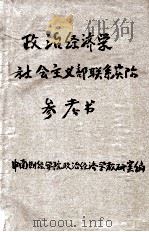 政治经济学
社会主义部联系实际
参考书
中南财经学院政治经济学教研室编